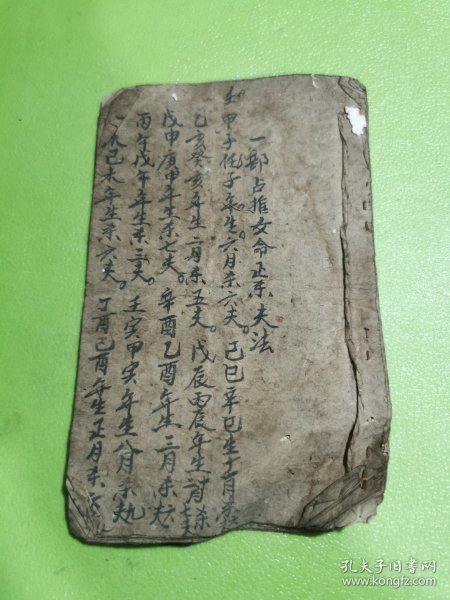 一部占推女命正杀夫法
甲子任子年生。六月杀六夫。己巳辛巳生十一月杀
乙亥癸亥年生二月杀五夫。戊辰丙辰年生 杀七夫
戊申庚申年生杀七夫。辛酉乙酉年生三月杀六
丙午戊午年生杀三夫。壬寅甲寅年生八月杀九
己未年生杀六夫。丁酉己酉年生正月杀
孔夫子旧书网
www.kongfz.com